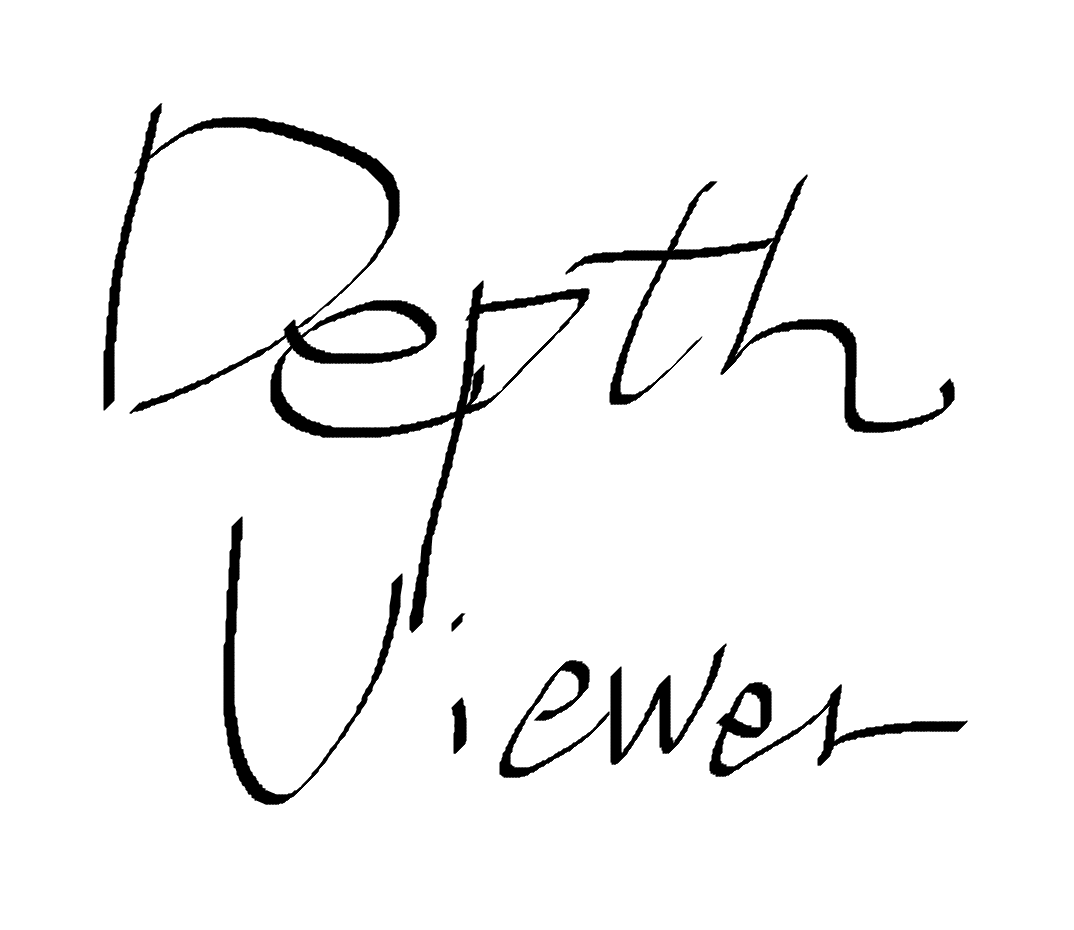 Depth
Viewer